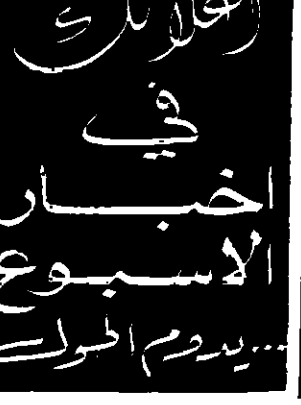 اعلانك
في
اخبار
الاسبوع
...يدوم اطول